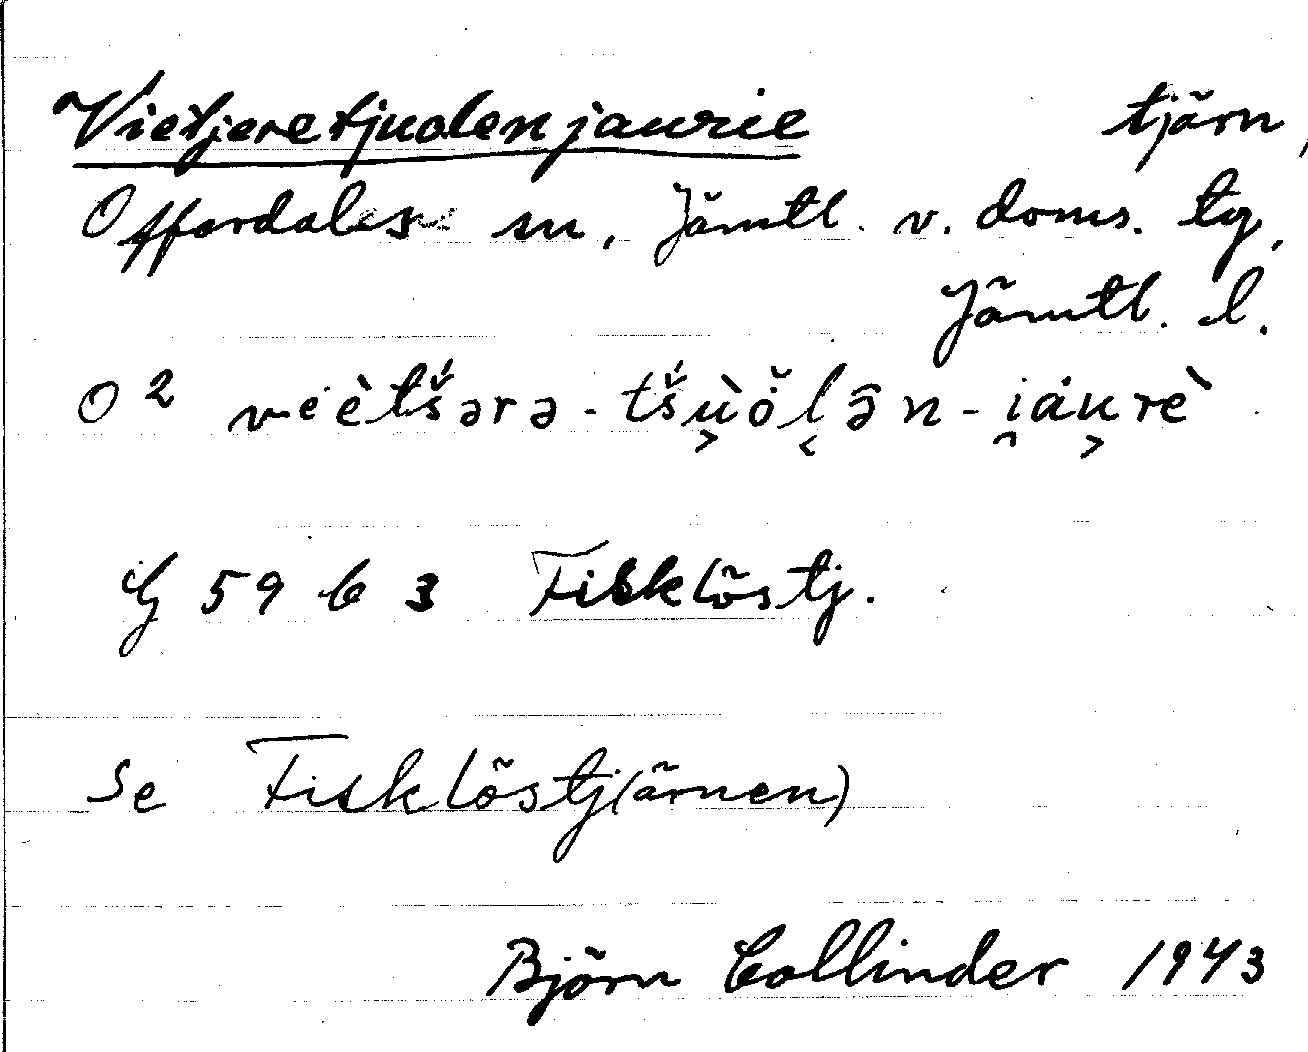 Vietjeretjuolenjaurie tjärn,
Offerdalens sn, Jämtl. v. doms. tg,
Jämtl. l.
O 2 vėètš́ərə-tš́u̖̇ȯ̀l̬ə̑n-i̯áu̬rè
G 59 b 3 Fisklöstj.
Se Fisklöstj(ärnen)
Björn Collinder 1943